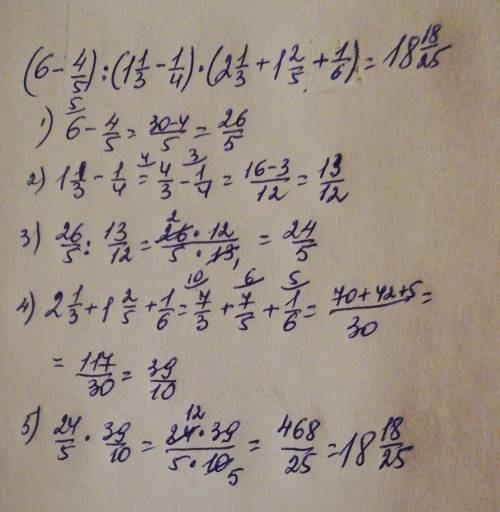 (6 - 4/5) : (1 1/3 - 1/4) · (2 1/3 + 1 2/5 + 1/6) = 18 18/25
1) ⁵6 - 4/5 = (30-4)/5 = 26/5
2) 1 1/3 - 1/4 = ⁴4/3 - ³1/4 = (16-3)/12 = 13/12
3) 26/5 : 13/12 = (²26 · 12)/(5 · 13₁) = 24/5
4) 2 1/3 + 1 2/5 + 1/6 = ¹⁰7/3 + ⁶7/5 + ⁵1/6 = (70+42+5)/30 =
= 117/30 = 39/10
5) 24/5 · 39/10 = (¹²24 · 39)/(5 · 10₅) = 468/25 = 18 18/25